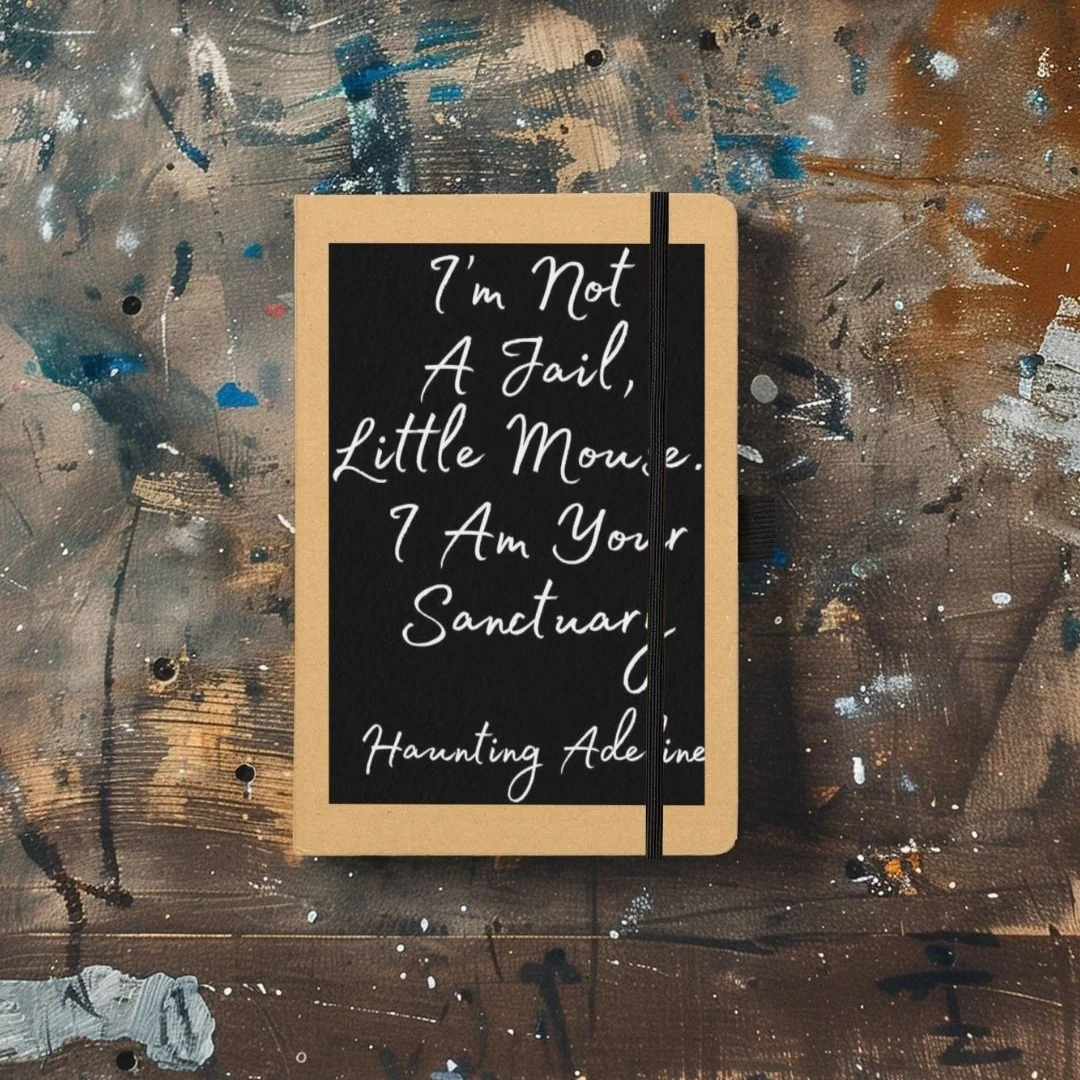 I'm Not
A Jail,
Little Mouse.
I Am Your
Sanctuary
Haunting Adeline